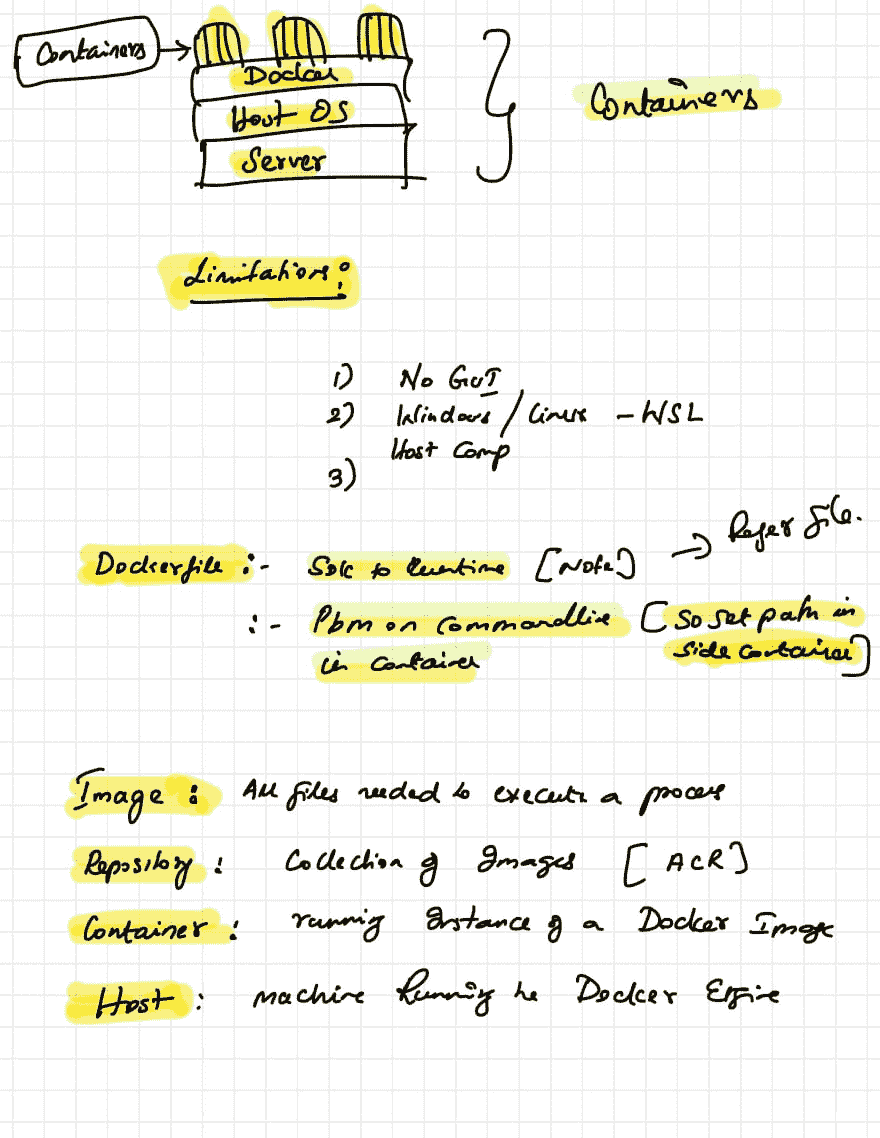 Containers
Docker
Host OS
Server
Containers
Limitations:
1) No GUI
2) Windows / Linux - WSL
Host Comp
3)
Dockerfile :- SDK to Runtime [Note] → Refer file.
:- Pbm on Commandline [So set path in
in container side container]
Image : All files needed to execute a process
Repository : Collection of Images [ACR]
Container : running Instance of a Docker Image
Host : machine Running the Docker Engine